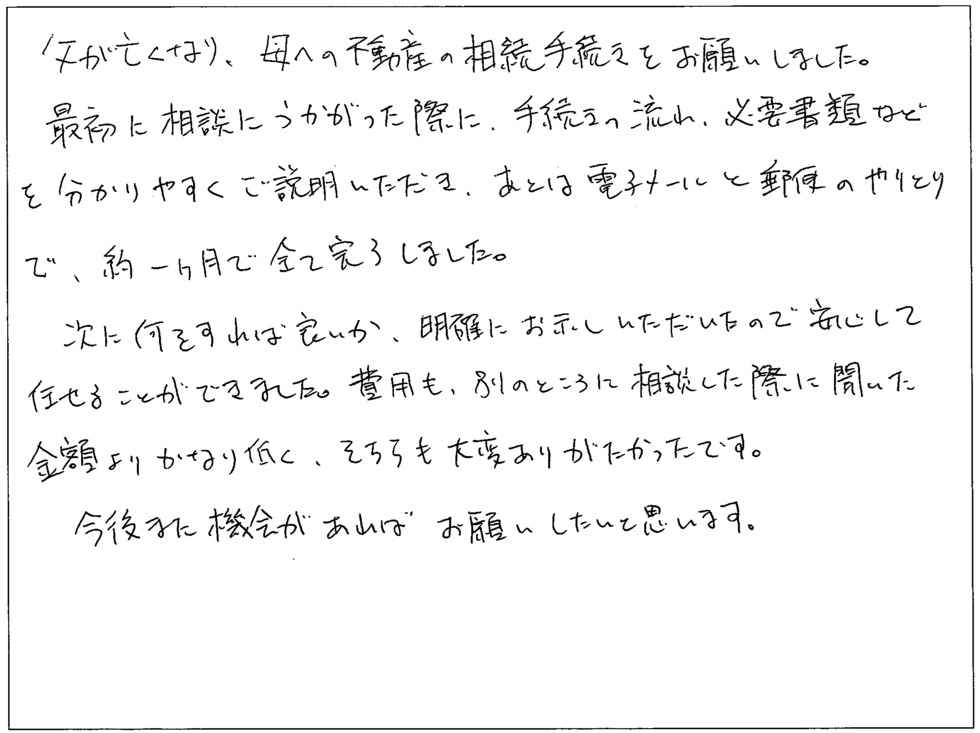 父が亡くなり、母への不動産の相続手続きをお願いしました。
最初に相談にうかがった際に、手続きの流れ、必要書類など
を分かりやすくご説明いただき、あとは電子メールと郵便のやりとり
で、約一ヶ月で全て完了しました。
次に何をすれば良いか、明確にお示しいただいたので安心して
任せることができました。費用も、別のところに相談した際に聞いた
金額よりかなり低く、そちらも大変ありがたかったです。
今後また機会があればお願いしたいと思います。